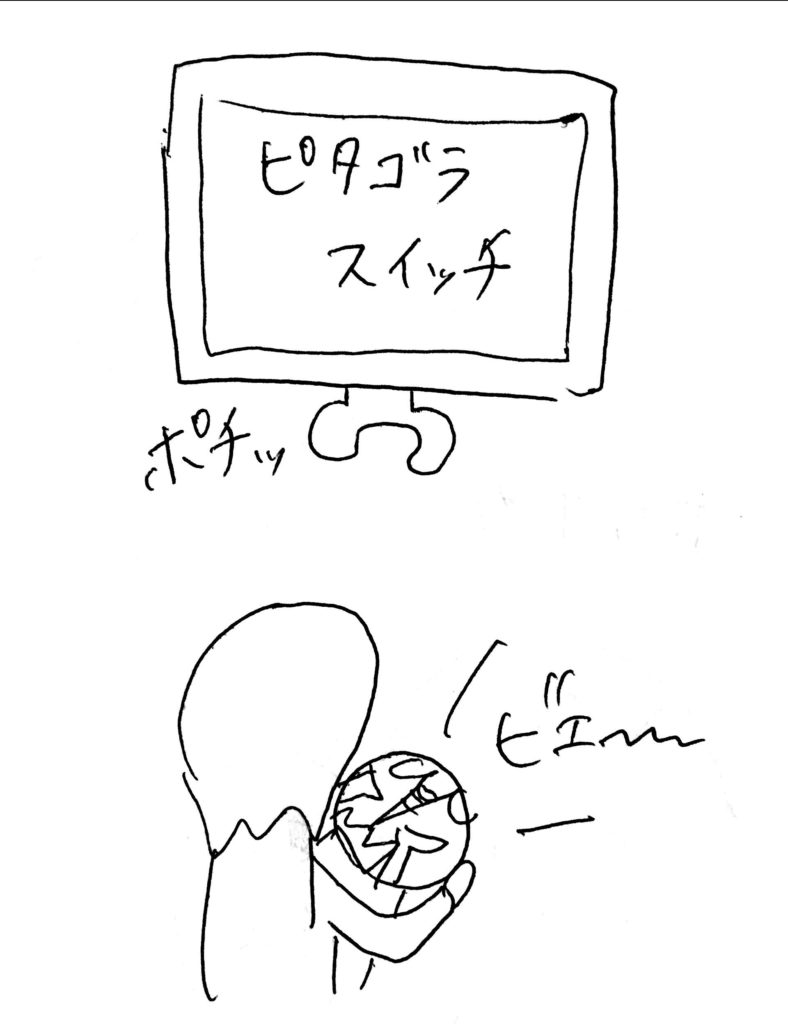 ピタゴラ
スイッチ
ポチッ
ビエ〜〜